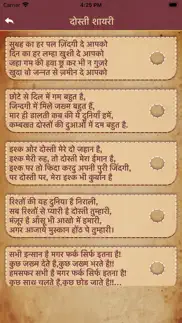 Carrier
4:25 PM
दोस्ती शायरी
सुबह का हर पल ज़िंदगी दे आपको
दिन का हर लम्हा खुशी दे आपको
जहा गम की हवा छू कर भी न गुजरे
खुदा वो जन्नत से ज़मीन दे आपको
छोटे से दिल में गम बहुत है,
जिन्दगी में मिले जख्म बहुत हैं,
मार ही डालती कब की ये दुनियाँ हमें,
कम्बखत दोस्तों की दुआओं में दम बहुत है.
इश्क और दोस्ती मेरे दो जहान है,
इश्क मेरी रुह, तो दोस्ती मेरा ईमान है,
इश्क पर तो फिदा करदु अपनी पुरी जिंदगी,
पर दोस्ती पर, मेरा इश्क भी कुर्बान है
रिश्तों की यह दुनिया हैं निराली,
सब रिश्तों से प्यारी है दोस्ती तुम्हारी,
मंज़ूर है आँसू भी आखो में हमारी,
अगर आजाये मुस्कान होंठ पे तुम्हारी.
सभी इन्सान है मगर फर्क सिर्फ इतना है!
कुछ जख्म देते है,कुछ जख्म भरते है!!
हमसफर सभी है मगर फर्क सिर्फ इतना है!
कुछ साथ चलते है,कुछ छोड जाते है!!..